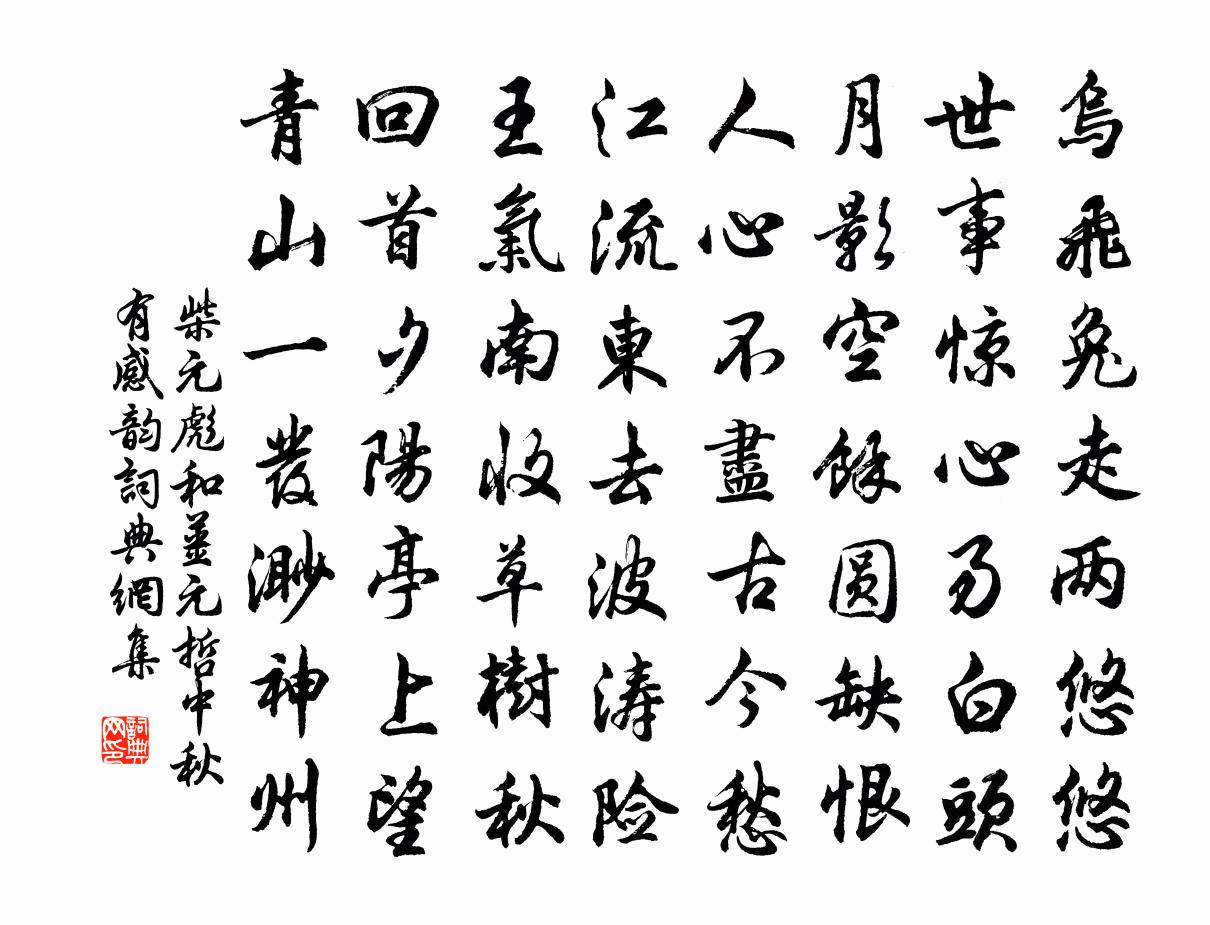 烏飛兔走两悠悠
世事惊心易白頭
月影空餘圆缺恨
人心不盡古今愁
江流東去波涛险
王氣南收草樹秋
回首夕陽亭上望
青山一發渺神州
柴元彪和薑元哲中秋
有感韵詞典網集
詞典
网印